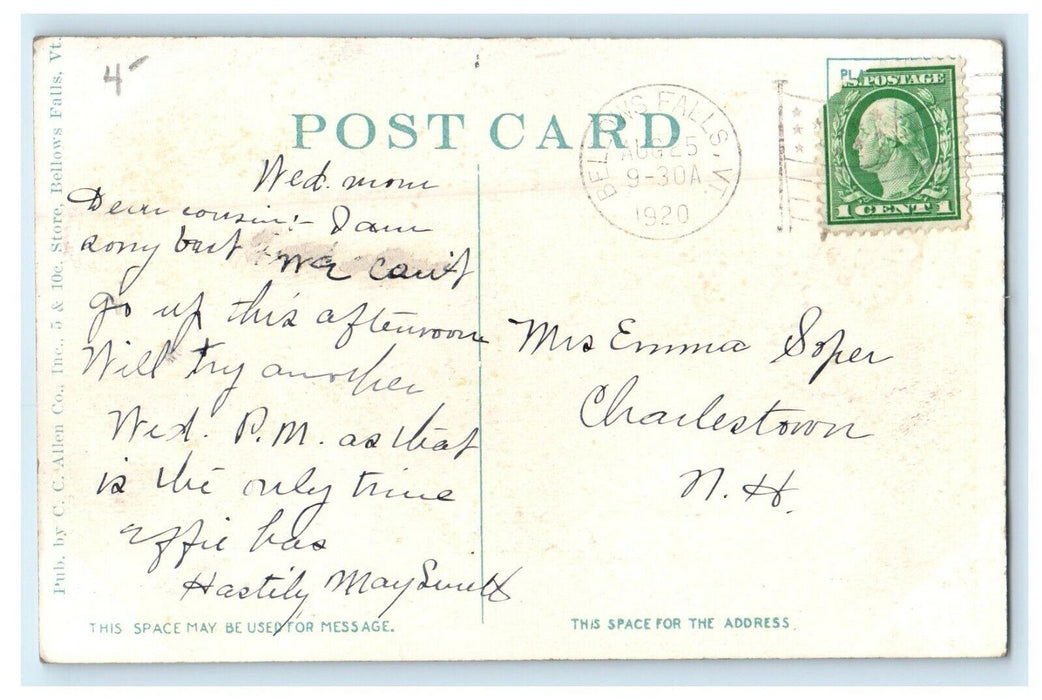 4
POST CARD
BELLOWS FALLS, VT.
AUG 25
9-30A
1920
PLA
U.S. POSTAGE
1 CENT 1
Pub. by C. C. Allen Co., Inc., 5 & 10c. Store, Bellows Falls, Vt.
Wed. morn
Dear cousin:- I am
sorry but We can't
go up this afternoon
Will try another
Wed. P.M. as that
is the only time
Effie has
Hastily May
Mrs Emma Soper
Charlestown
N. H.
THIS SPACE MAY BE USED FOR MESSAGE.
THIS SPACE FOR THE ADDRESS.